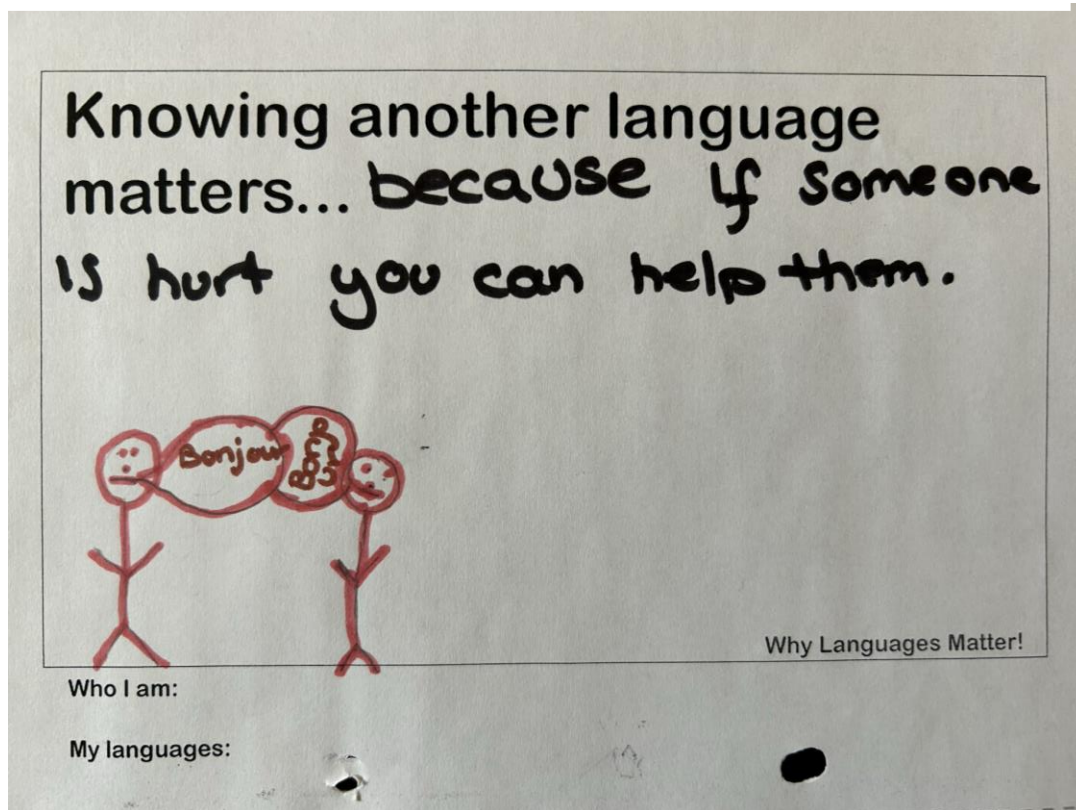 Knowing another language
matters... because if someone
is hurt you can help them.
Bonjour
Bonjo
ur
Why Languages Matter!
Who I am:
My languages: